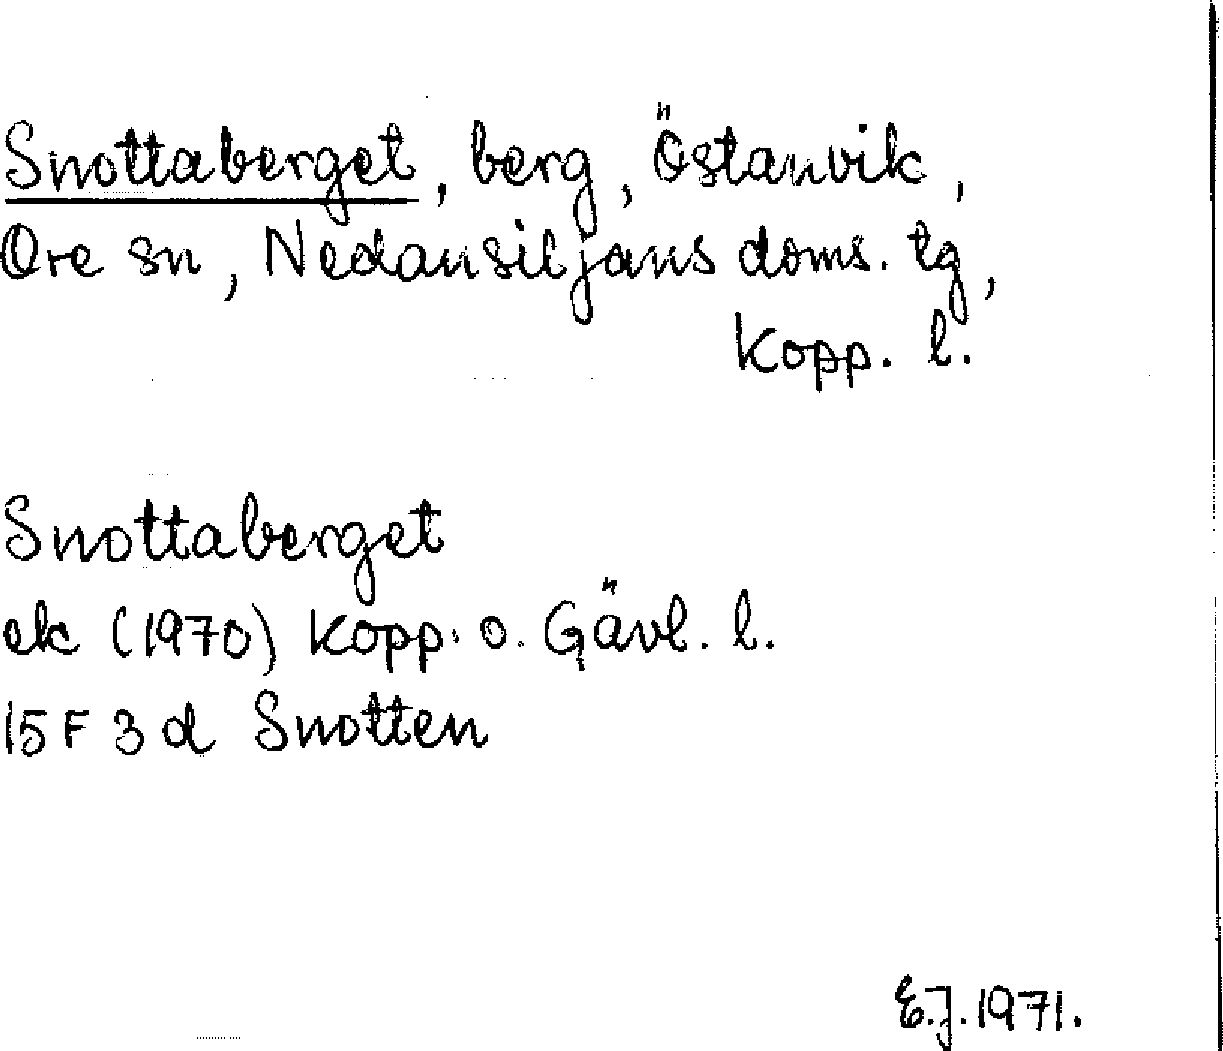 Snottaberget, berg, Östanvik,
Ore sn, Nedansiljans doms. tg,
Kopp. l.
Snottaberget
ek (1970) Kopp. o. Gävl. l.
15 F 3 d Snotten
E.J. 1971.